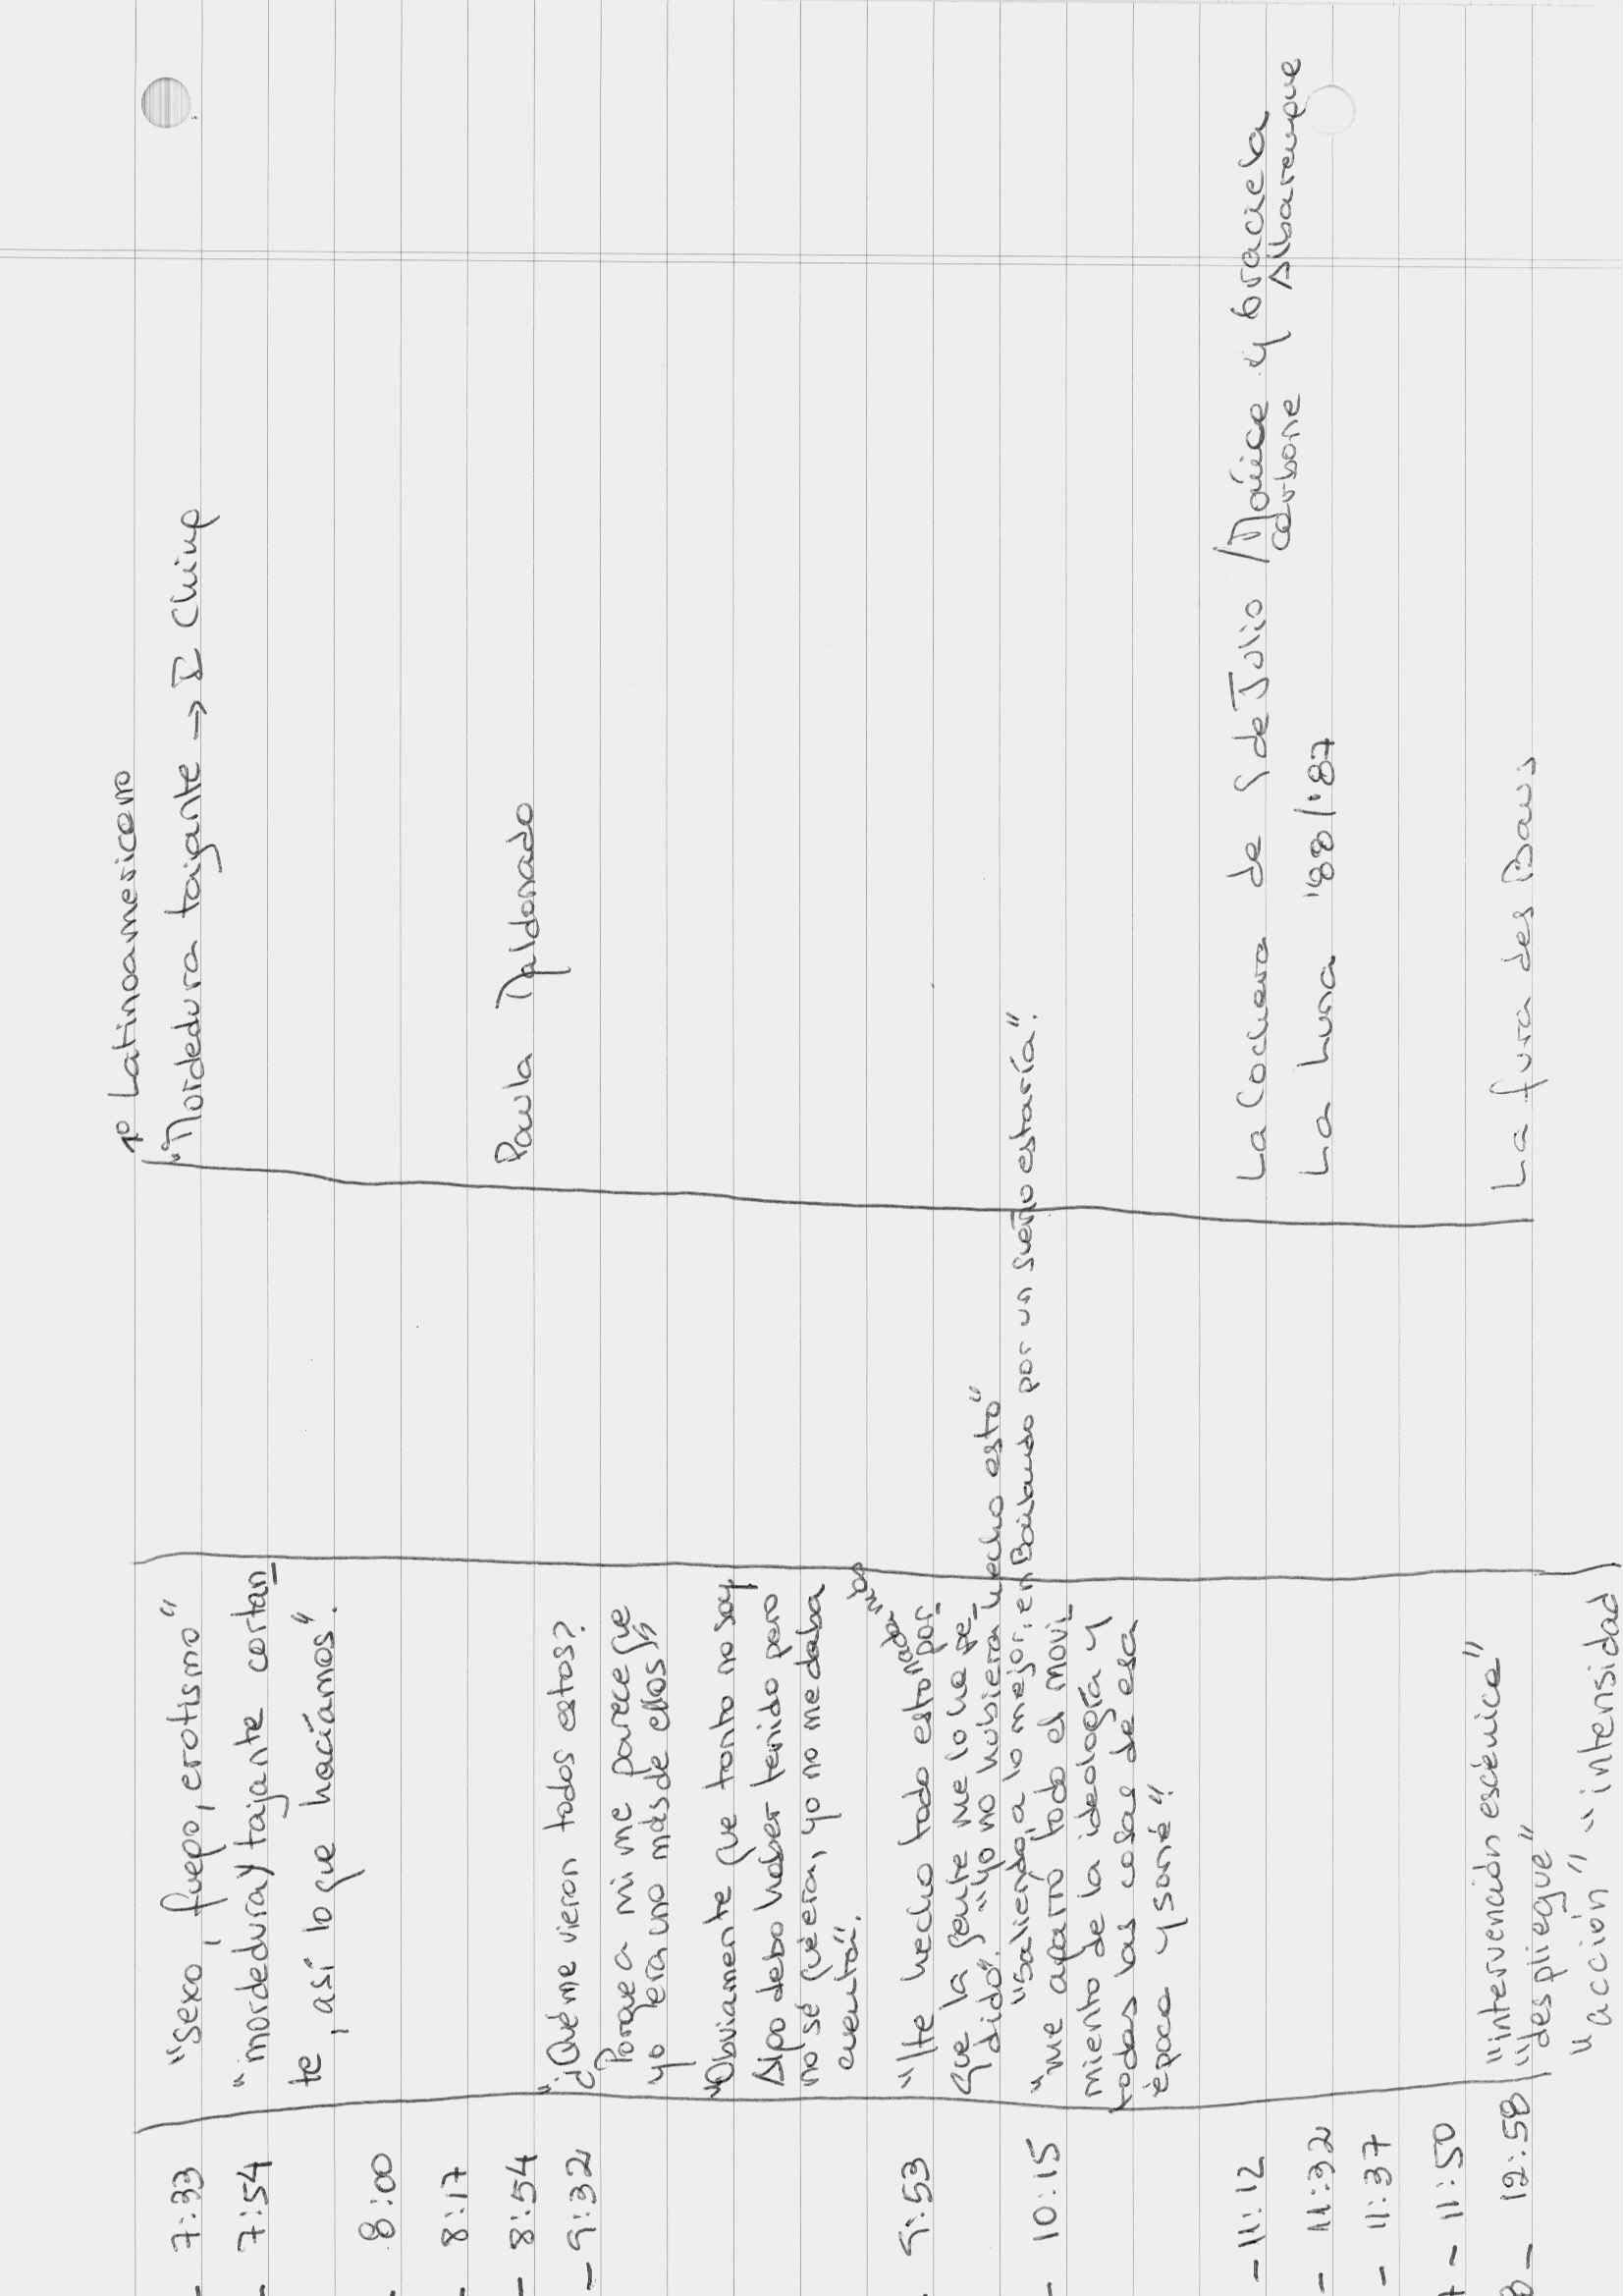 1º Latinoamericano
- 7:33 "sexo, fuego, erotismo" "Mordedura tajante → I Ching
- 7:54 "mordedura y tajante cortan_
te, así lo que hacíamos".
- 8:00
- 8:17
- 8:54 Paula Maldonado
- 9:32 "¿Qué me vieron todos estos?
Porque a mi me parece que
yo era uno más de ellos"
"Obviamente que tonto no soy
Algo debo haber tenido pero
no sé qué era, yo no me daba
cuenta".
- 9:53 "He hecho todo esto por_
que la gente me lo ha pe_
dido". "yo no hubiera hecho esto"
"saliendo, a lo mejor, en Bailando por un sueño estaría".
- 10:15 "me agarró todo el movi_
miento de la ideología y
todas las cosas de esa
época y soné"
- 11:12 La Cochera de 9 de Julio / Mónica y Graciela
Carbone Albarenque
- 11:32 La Luna '88/'87
- 11:37
- 11:50 "intervención escénica"
- 12:58 "despliegue" La fura des Baus
"acción" "intensidad